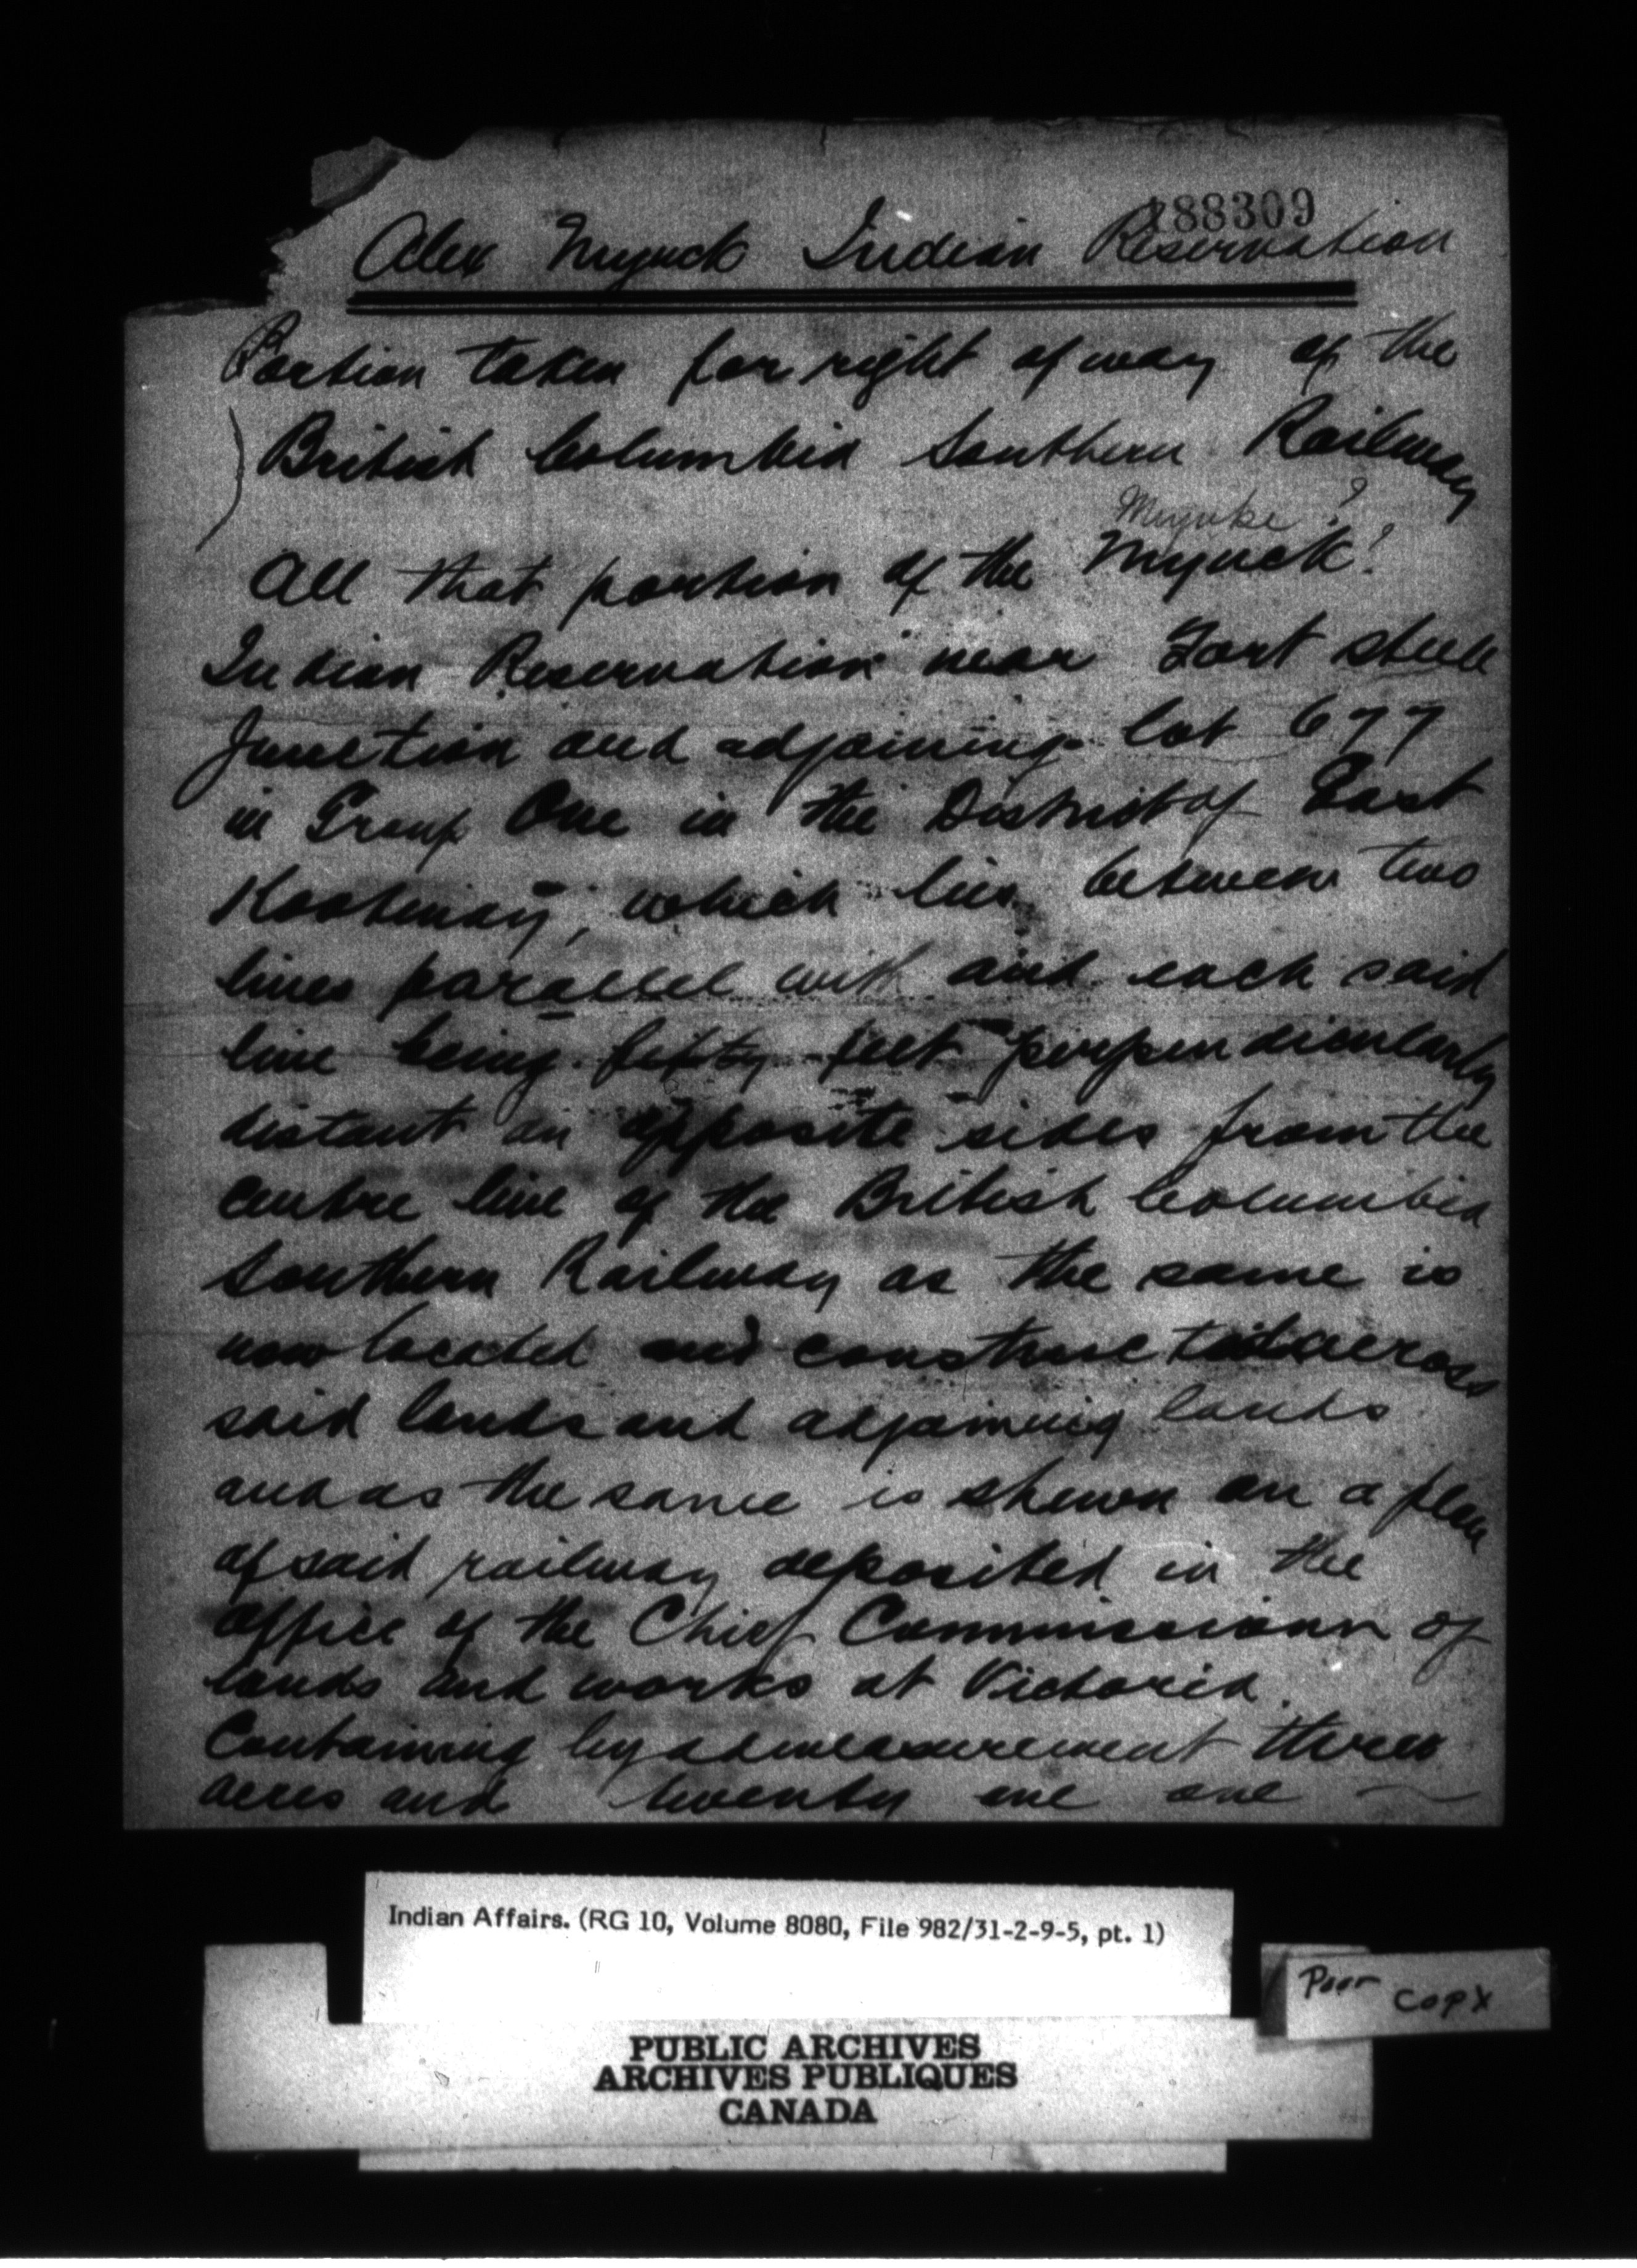 188309
Alex Myuck Indian Reservation
Portion taken for right of way of the
British Columbia Southern Railway
Myuke ?
All that portion of the Myuck?
Indian Reservation near Fort Steele
Junction and adjoining lot 677
in Group One in the District of East
Kootenay, which lies between two
lines parallel with and each said
line being fifty feet perpendicularly
distant on opposite sides from the
centre line of the British Columbia
Southern Railway as the same is
now located and constructed across
said lands and adjoining lands
and as the same is shewn on a plan
of said railway deposited in the
office of the Chief Commissioner of
lands and works at Victoria.
Containing by admeasurement three
acres and twenty one one
Indian Affairs. (RG 10, Volume 8080, File 982/31-2-9-5, pt. 1)
Poor Copy
PUBLIC ARCHIVES
ARCHIVES PUBLIQUES
CANADA